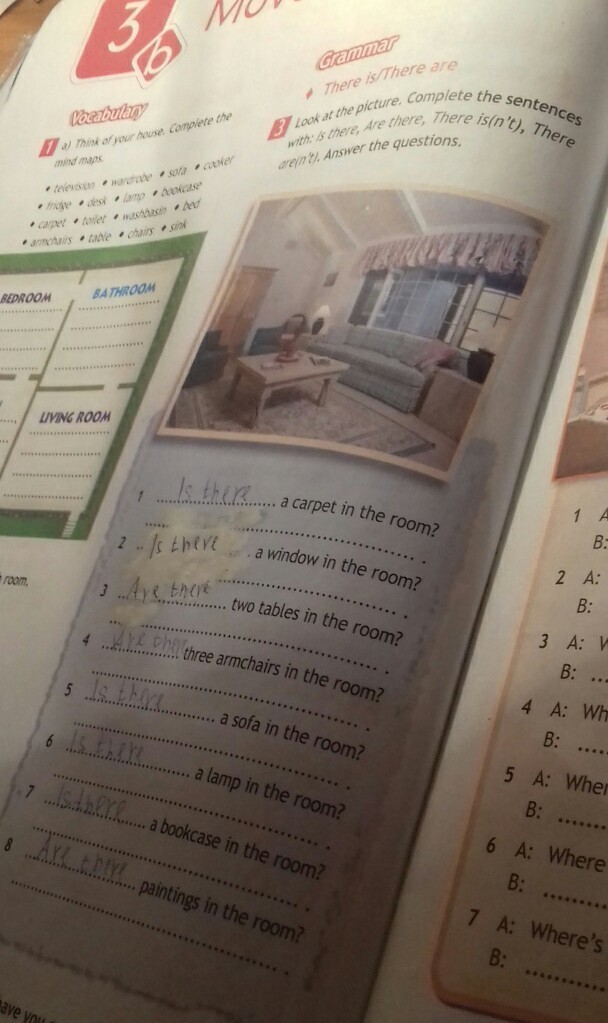 3
b
Vocabulary
1 a) Think of your house. Complete the
mind maps.
• television • wardrobe • sofa • cooker
• fridge • desk • lamp • bookcase
• carpet • toilet • washbasin • bed
• armchairs • table • chairs • sink
BEDROOM
BATHROOM
LIVING ROOM
room.
Grammar
• There is/There are
3 Look at the picture. Complete the sentences
with: Is there, Are there, There is(n't), There
are(n't). Answer the questions.
1 Is there a carpet in the room?
2 Is there a window in the room?
3 Are there two tables in the room?
4 Are there three armchairs in the room?
5 Is there a sofa in the room?
6 Is there a lamp in the room?
7 Is there a bookcase in the room?
8 Are there paintings in the room?
1 A
B:
2 A:
B:
3 A: W
B:
4 A: Wh
B:
5 A: Wher
B:
6 A: Where
B:
7 A: Where's
B: